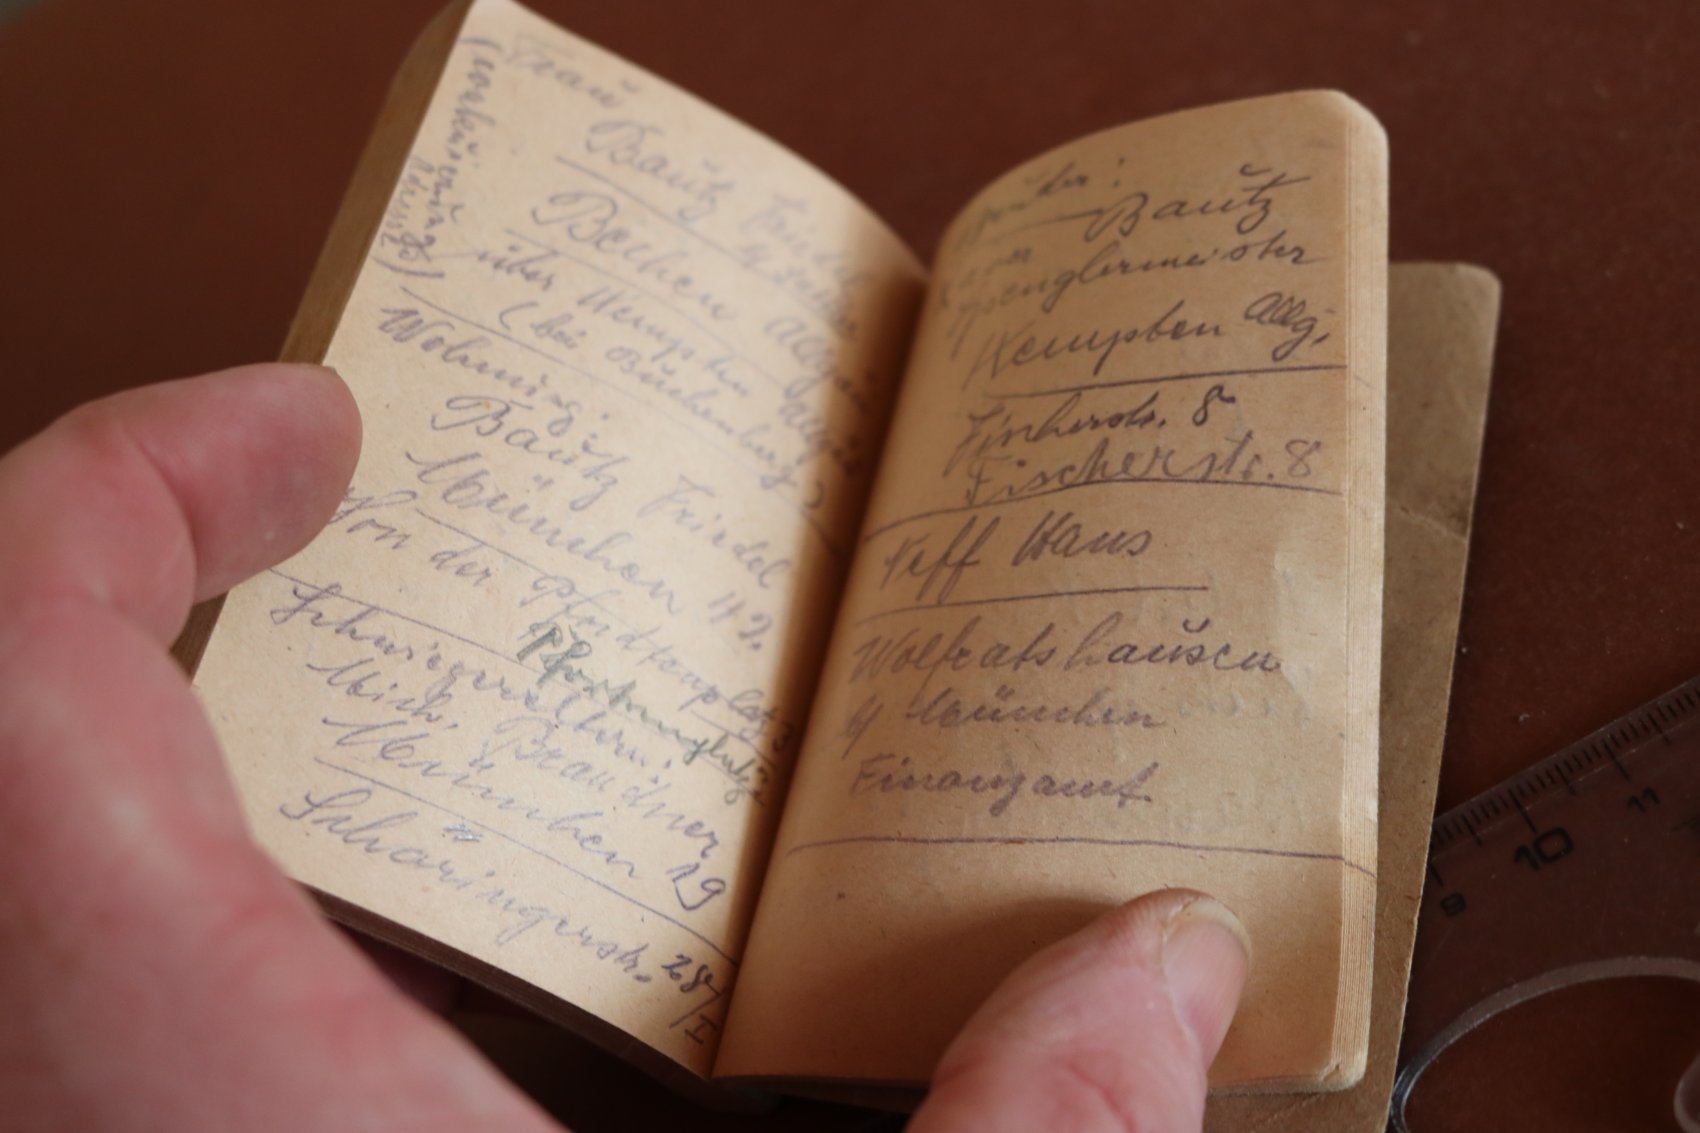 Frau
Bautz Friedel
Bechen Allgäu
über Kempten Allgäu
(bei Buchenberg)
Wohnung:
Bautz Friedel
München 42.
Von der Pfordtenplatz
Schwiegereltern:
Mich. Brandner
München 19
Schäringerstr. 28/I
Bautz
Spenglermeister
Kempten Allg.
Fischerstr. 8
Fischerstr. 8
Neff Hans
Wolfratshausen
b/ München
Finanzamt
9 10 11